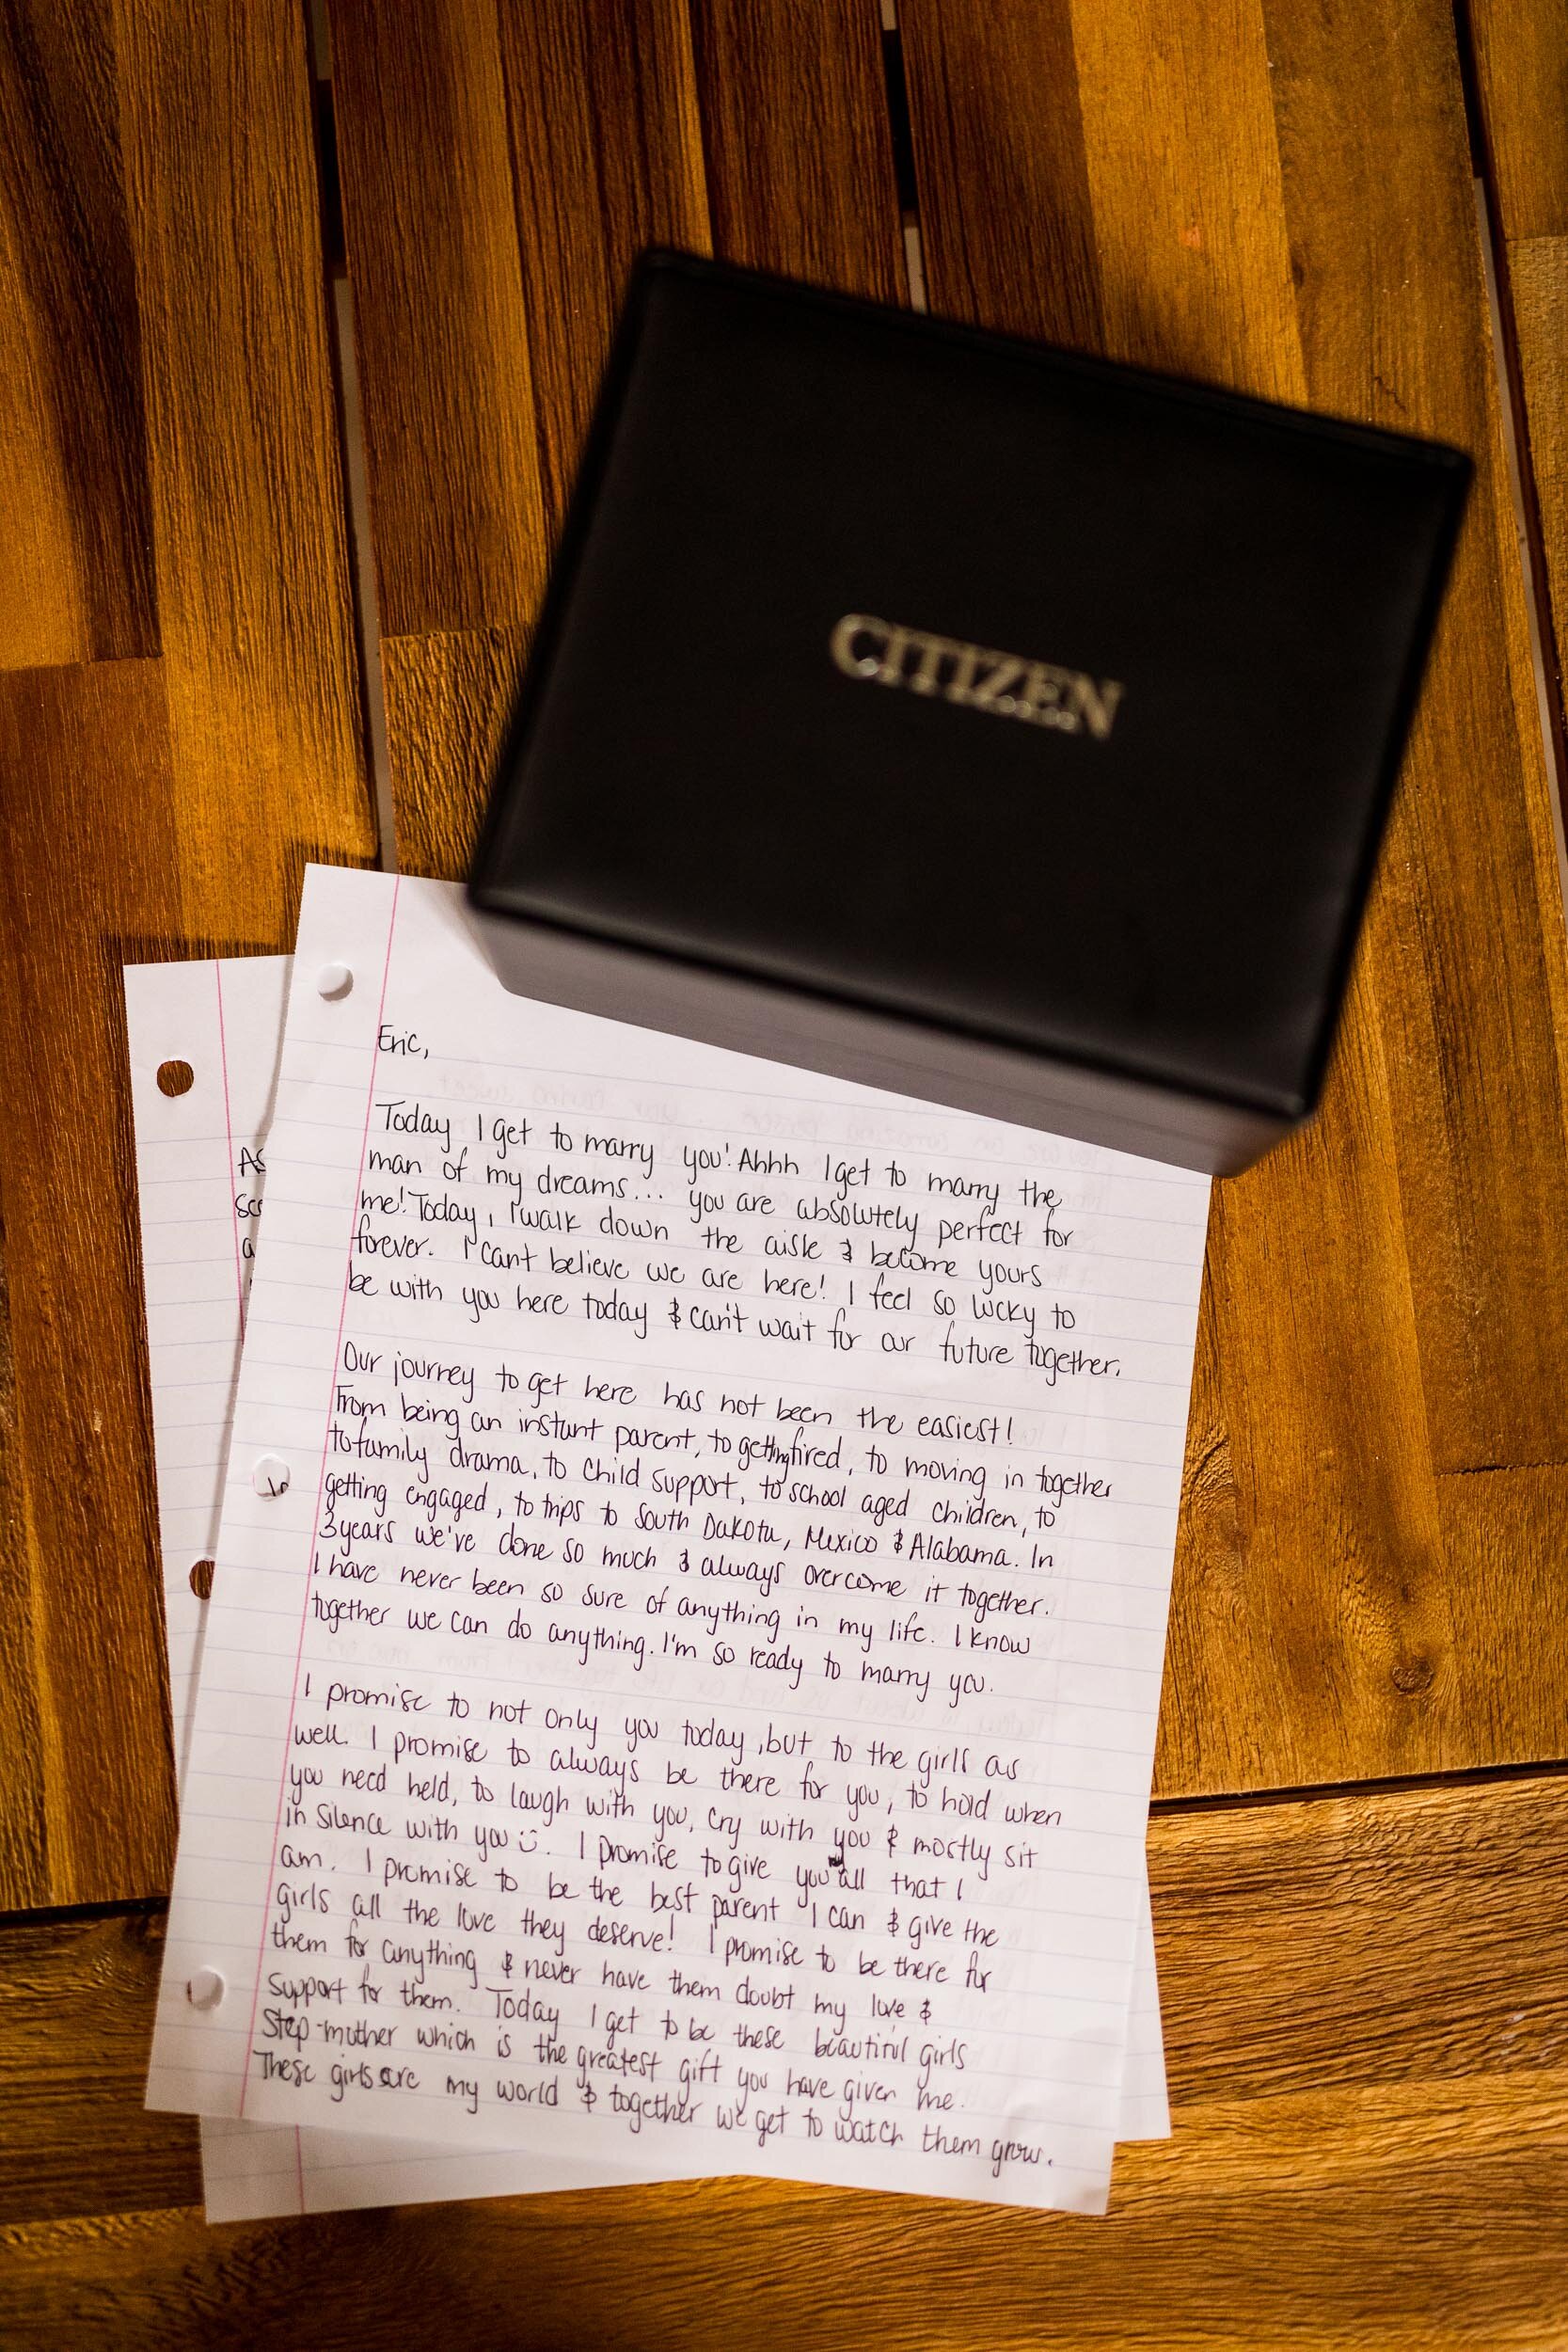 CITIZEN
Eric,
Today I get to marry you! Ahhh I get to marry the
man of my dreams... you are absolutely perfect for
me! Today, I walk down the aisle & become yours
forever. I can't believe we are here! I feel so lucky to
be with you here today & can't wait for our future together.
Our journey to get here has not been the easiest!
From being an instant parent, to getting fired, to moving in together
to family drama, to child support, to school aged children, to
getting engaged, to trips to South Dakota, Mexico & Alabama. In
3 years we've done so much & always overcome it together.
I have never been so sure of anything in my life. I know
together we can do anything. I'm so ready to marry you.
I promise to not only you today, but to the girls as
well. I promise to always be there for you, to hold when
you need held, to laugh with you, cry with you & mostly sit
in silence with you ü. I promise to give you all that I
am. I promise to be the best parent I can & give the
girls all the love they deserve! I promise to be there for
them for anything & never have them doubt my love &
support for them. Today I get to be these beautiful girls
Step-mother which is the greatest gift you have given me.
These girls are my world & together we get to watch them grow.